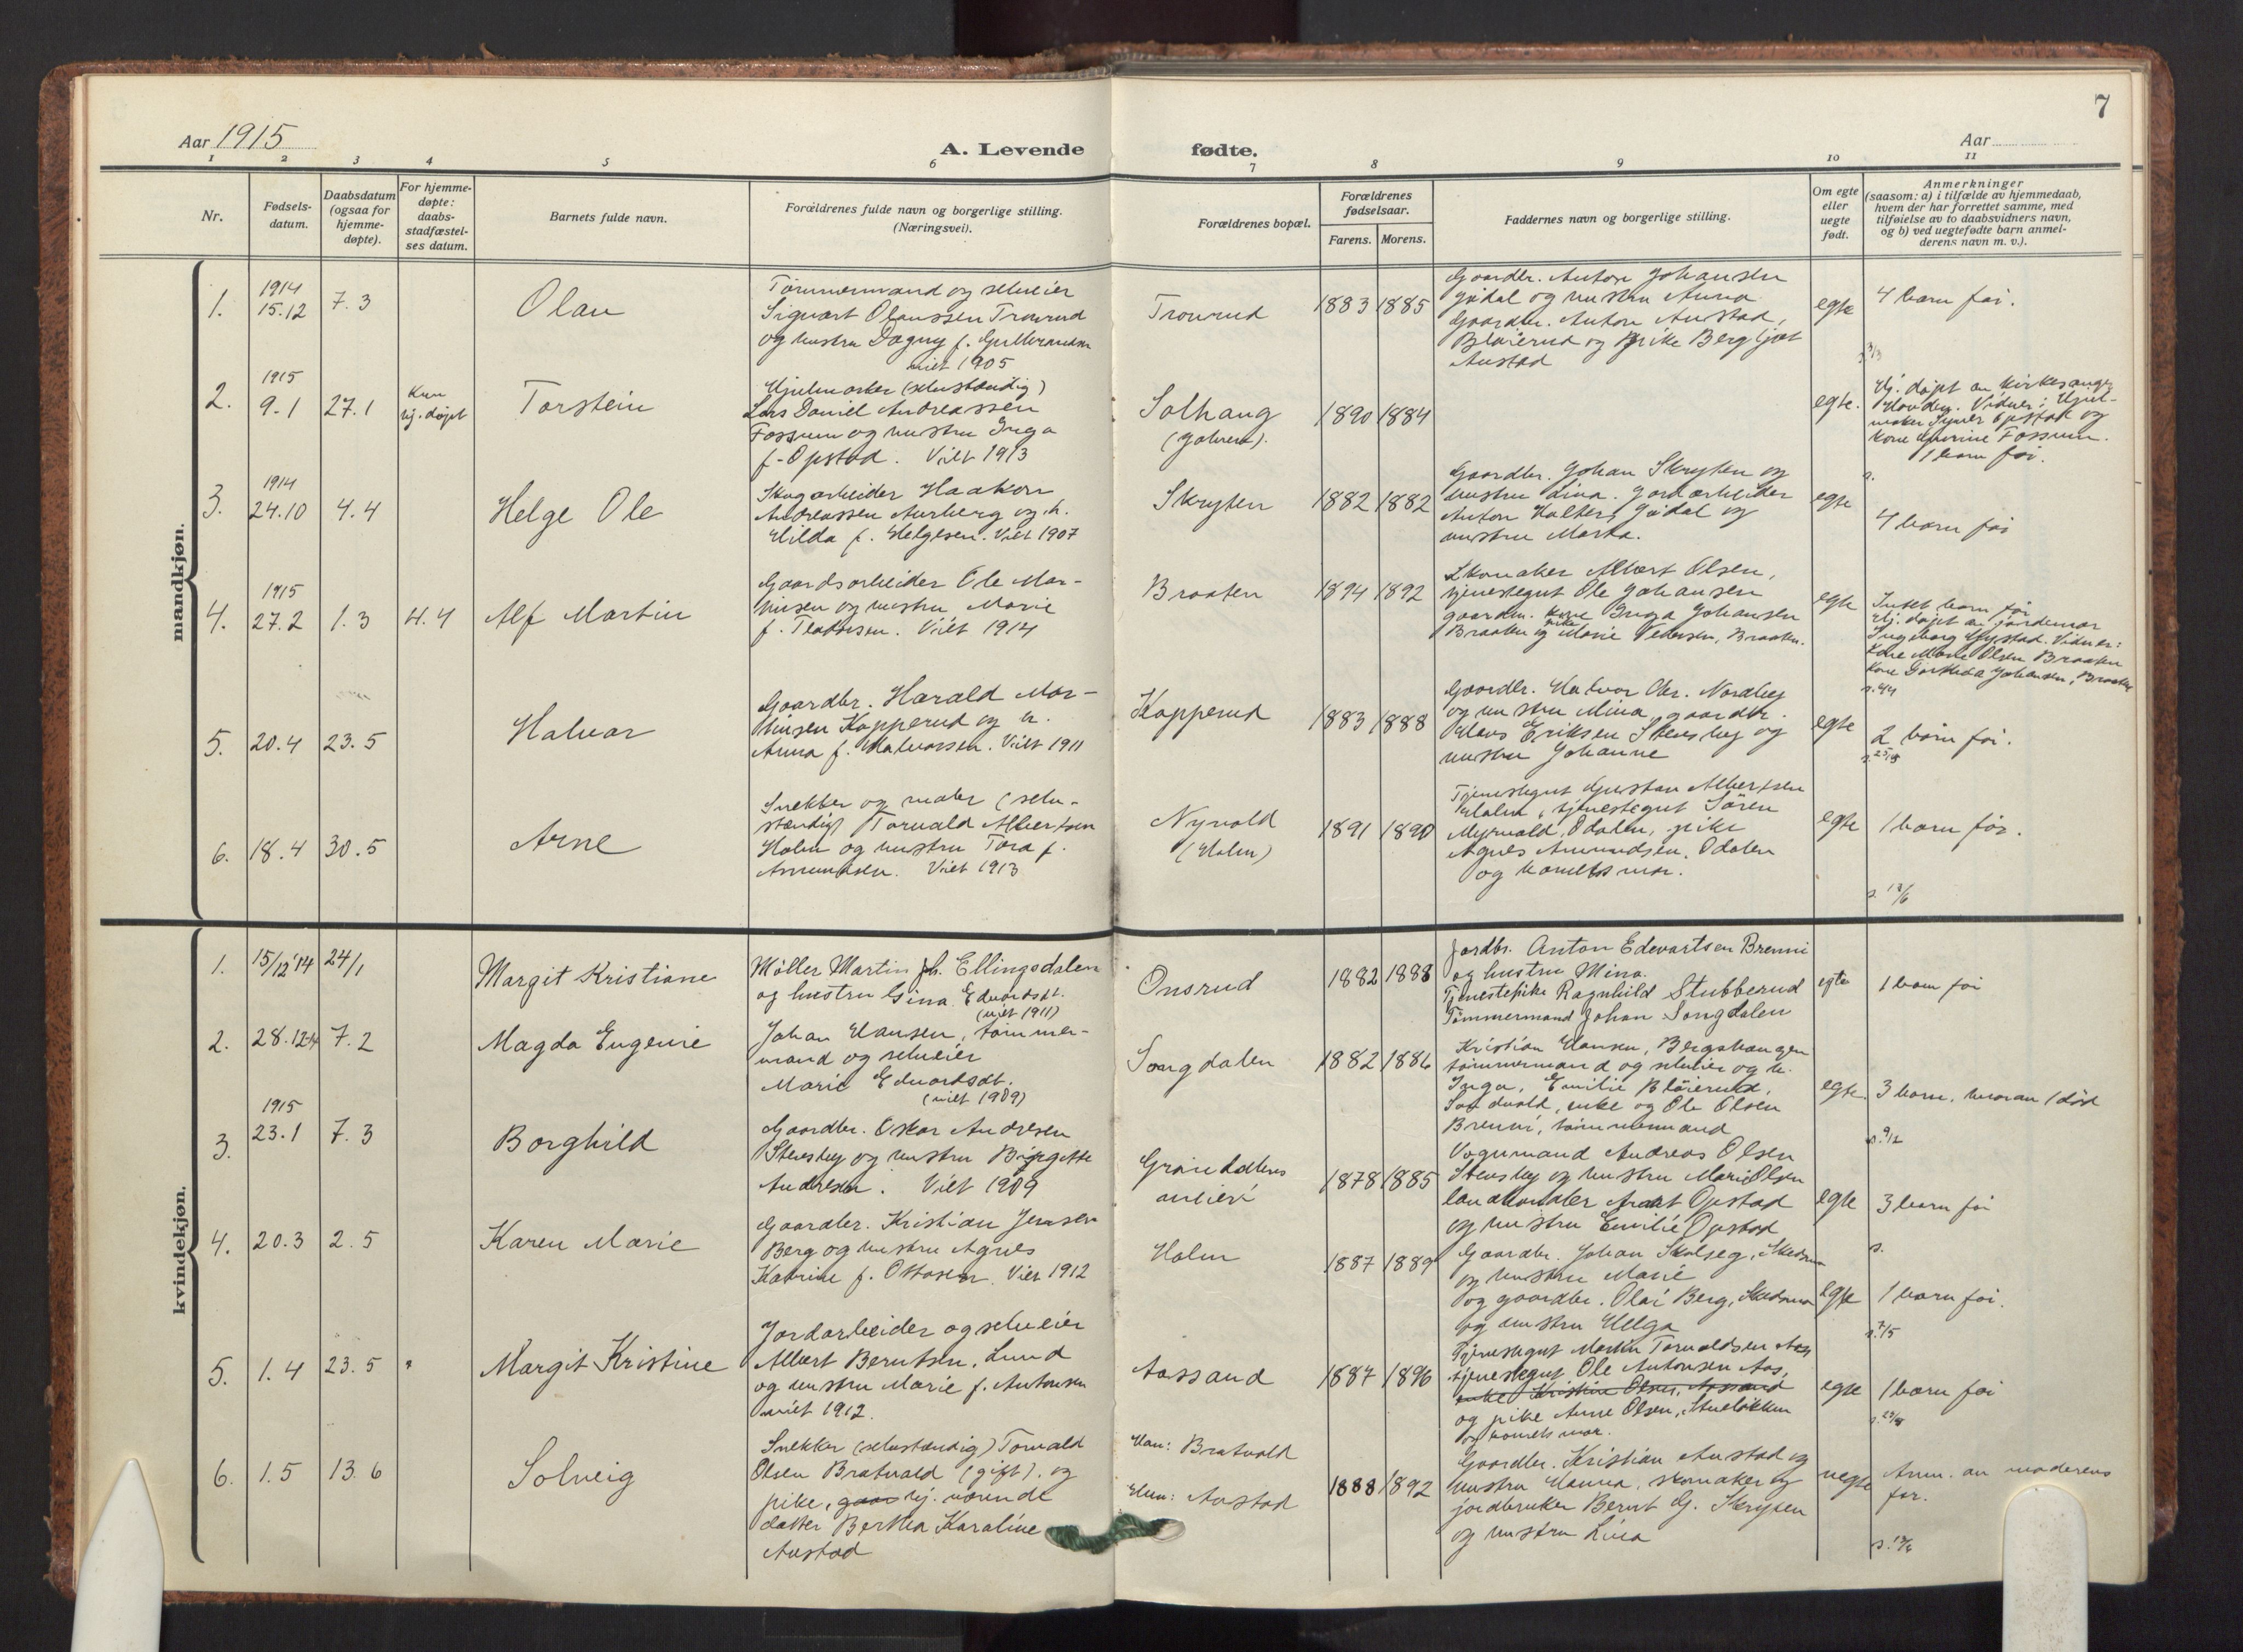 7
Aar 1915
A. Levende fødte.
Aar
1 2 3 4 5 6 7 8 9 10 11
Nr.
Fødsels-
datum.
Daabsdatum
(ogsaa for
hjemme-
døpte).
For hjemme-
døpte:
daabs-
stadfæstel-
ses datum.
Barnets fulde navn.
Forældrenes fulde navn og borgerlige stilling.
(Næringsvei).
Forældrenes bopæl.
Forældrenes
fødselsaar.
Farens. Morens.
Faddernes navn og borgerlige stilling.
Om egte
eller
uegte
født.
Anmerkninger
(saasom: a) i tilfælde av hjemmedaab,
hvem der har forrettet samme, med
tilføielse av to daabsvidners navn,
og b) ved uegtefødte barn anmel-
derens navn m. v.).
mandkjøn.
1.
1914
15.12
7.3
Olav
Tømmermand og selveier
Sigvart Olaussen Trourud
og hustru Dagny f. Gulbrandsen
viet 1905
Trourud
1883 1885
Gaardbr. Anton Johansen
Jødal og hustru Anna
Gaardbr. Anton Austad,
Bløierud og Pike Bergljot
Austad
egte
4 barn før.
2.
1915
9.1
27.1
Kun
hj. døpt
Torstein
Hjulmaker (selvstændig)
Lars Daniel Andreassen
Fossum og hustru Inga
f. Opstad. Viet 1913
Solhaug
1890 1884
egte.
Hj. døpt av kirkesanger
Vidner: Hjul-
maker Opstad og
Kone Fossum.
1 barn før.
s.
3.
1914
24.10
4.4
Helge Ole
Skogarbeider Haakon
Andreassen Aurberg og h.
Hilda f. Helgesen. Viet 1907
Skryten
1882 1882
Gaardbr. Johan Skryten og
hustru Lina. Jordarbeider
Anton Halter, Jødal og
hustru Marta.
egte
4 barn før
4.
1915
27.2
1.3
4.4
Alf Martin
Gaardsarbeider Ole Mar-
tinsen og hustru Marie
f. Teodorsen. Viet 1914
Braaten
1894 1892
Skomaker Albert Olsen,
tjenestegut Ole Johansen
gaardm. kone Inga Johansen
Braaten og pike Marie Pedersen, Braaten.
egte
Intet barn før
Hj. døpt av jordemor
Ingeborg Nystad. Vidner:
Kone Marie Olsen Braaten
Kone Johansen, Braaten
s. 4/4
5.
20.4
23.5
Halvar
Gaardbr. Harald Mar-
tinsen Kopperud og h.
Anna f. Halvorsen. Viet 1911
Kopperud
1883 1888
Gaardbr. Halvor Chr. Nordbey
og hustru Mina, gaardbr.
Klaus Eriksen Stensby og
hustru Johanne
egte
2 barn før.
6.
18.4
30.5
Arne
Snekker og maler (selv-
stændig) Torvald Albertsen
Holm og hustru Tora f.
Amundsen. Viet 1913
Nyvold
(Holm)
1891 1890
Tjenestegut Gustav Albertsen
Holm, tjenestegut Søren
Myrvold, Odalen, pike
Agnes Amundsen, Odalen
og barnets mor.
egte
1 barn før.
s. 12/6
kvindekjøn.
1.
15/12 14
24/1
Margit Kristiane
Møller Martin Jh. Ellingsdalen
og hustru Gina Edvardsdt.
(viet 1911)
Onsrud
1882 1888
Jordbr. Anton Edvartsen Brenni
og hustru Mina.
Tjenestepike Ragnhild Stubberud
Tømmermand Johan Songdalen
egte
1 barn før
2.
28.12.14
7.2
Magda Eugenie
Johan Hansen, tømmer-
mand og selveier
Marie Edvardsdt.
(viet 1909)
Songdalen
1882 1886
Kristian Hansen, Bergshaugen
tømmermand og selveier og h.
Inga, Emilie Bløierud,
Sandvold, enke og Ole Olsen
Brenni, tømmermand
egte
3 barn, hvorav 1 død
s. 9/2
3.
1915
23.1
7.3
Borghild
Gaardbr. Oskar Andresen
Stensby og hustru Birgitte
Andresen. Viet 1909
1878 1885
Vognmand Andreas Olsen
Stensby og hustru Marie Olsen
landhandler Opstad
og hustru Emilie Opstad
egte
3 barn før
s.
4.
20.3
2.5
Karen Marie
Gaardbr. Kristian Jensen
Berg og hustru Agnes
Katrine f. Ottosen. Viet 1912
Holm
1887 1889
Gaardbr. Johan
og hustru Marie
og gaardbr. Olai Berg, Skedsmo
og hustru Helga
egte
1 barn før.
s. 7/5
5.
1.4
23.5
Margit Kristine
Jordarbeider og selveier
Albert Berntsen, Lund
og hustru Marie f. Antonsen
viet 1912.
Aassand
1887 1896
Tjenestegut Martin Torvaldsen Aas
tjenestegut Ole Antonsen Aas,
enke Kristine Olsen, Aassand
og pike Anne Olsen,
og barnets mor.
egte
1 barn før
6.
1.5
13.6
Solveig
Snekker (selvstændig) Torvald
Olsen Bratvold (gift). og
pike, hj. værende
datter Bertha Karoline
Austad
Han: Bratvold
Hun: Austad
1888 1892
Gaardbr. Kristian Austad og
hustru Hanna, skomaker og
jordbruker Bernt G. Skryten
og hustru Lina
uegte
Anm. av moderens
far.
s. 13/6